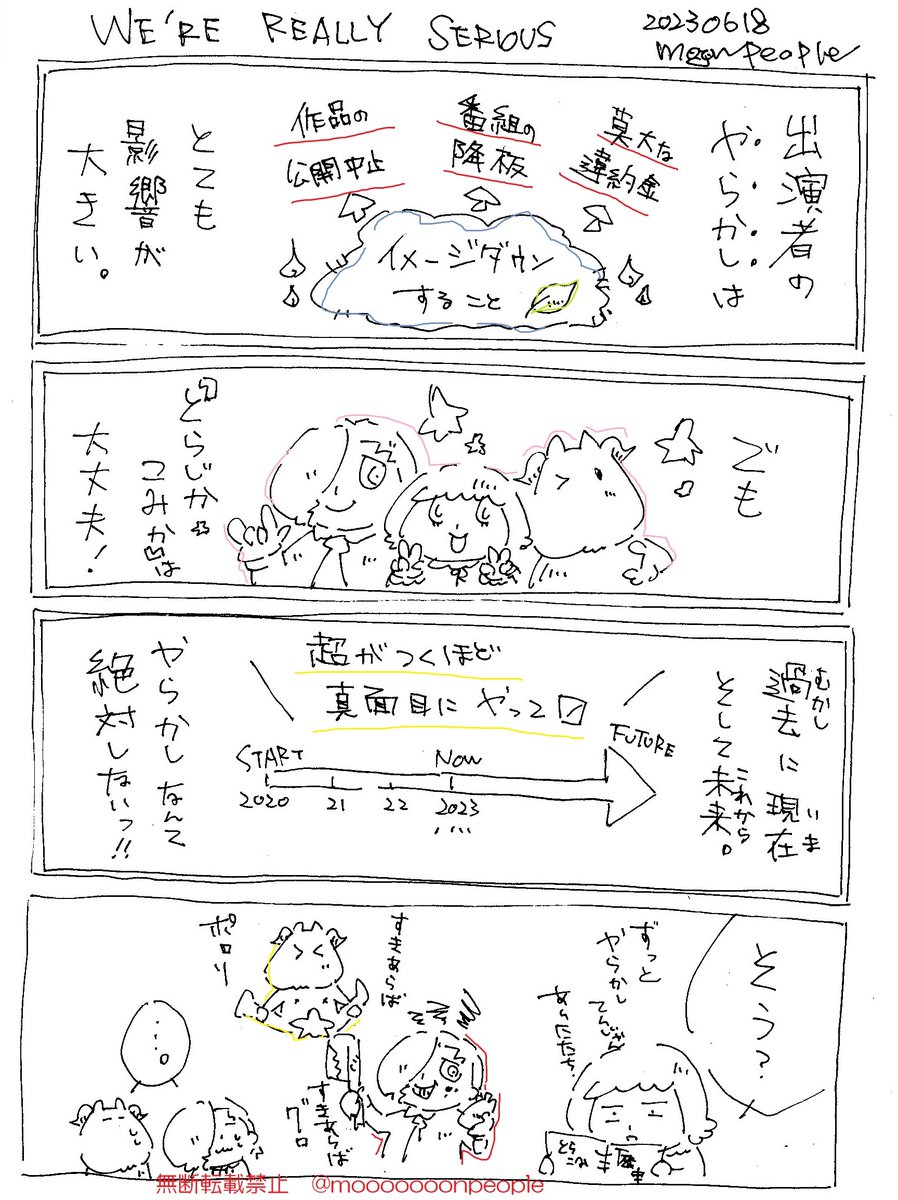 WE'RE REALLY SERIOUS
20230618
moonpeople
出演者の
やらかしは
莫大な
違約金
番組の
降板
作品の
公開中止
イメージダウン
すること
とても
影響が
大きい。
でも
とらじか
こみかは
大丈夫!
むかし いま
過去に現在
これから
そして未来。
超がつくほど
真面目にやって
START
Now
FUTURE
2020
21
22
2023
やらかしなんて
絶対しないっ!!
そう?
ずっと
やらかし
てんじゃん
あんたたち
すきあらば
ポロリ
すきあらば
グロ
歴史
…。
無断転載禁止 @mooooooonpeople